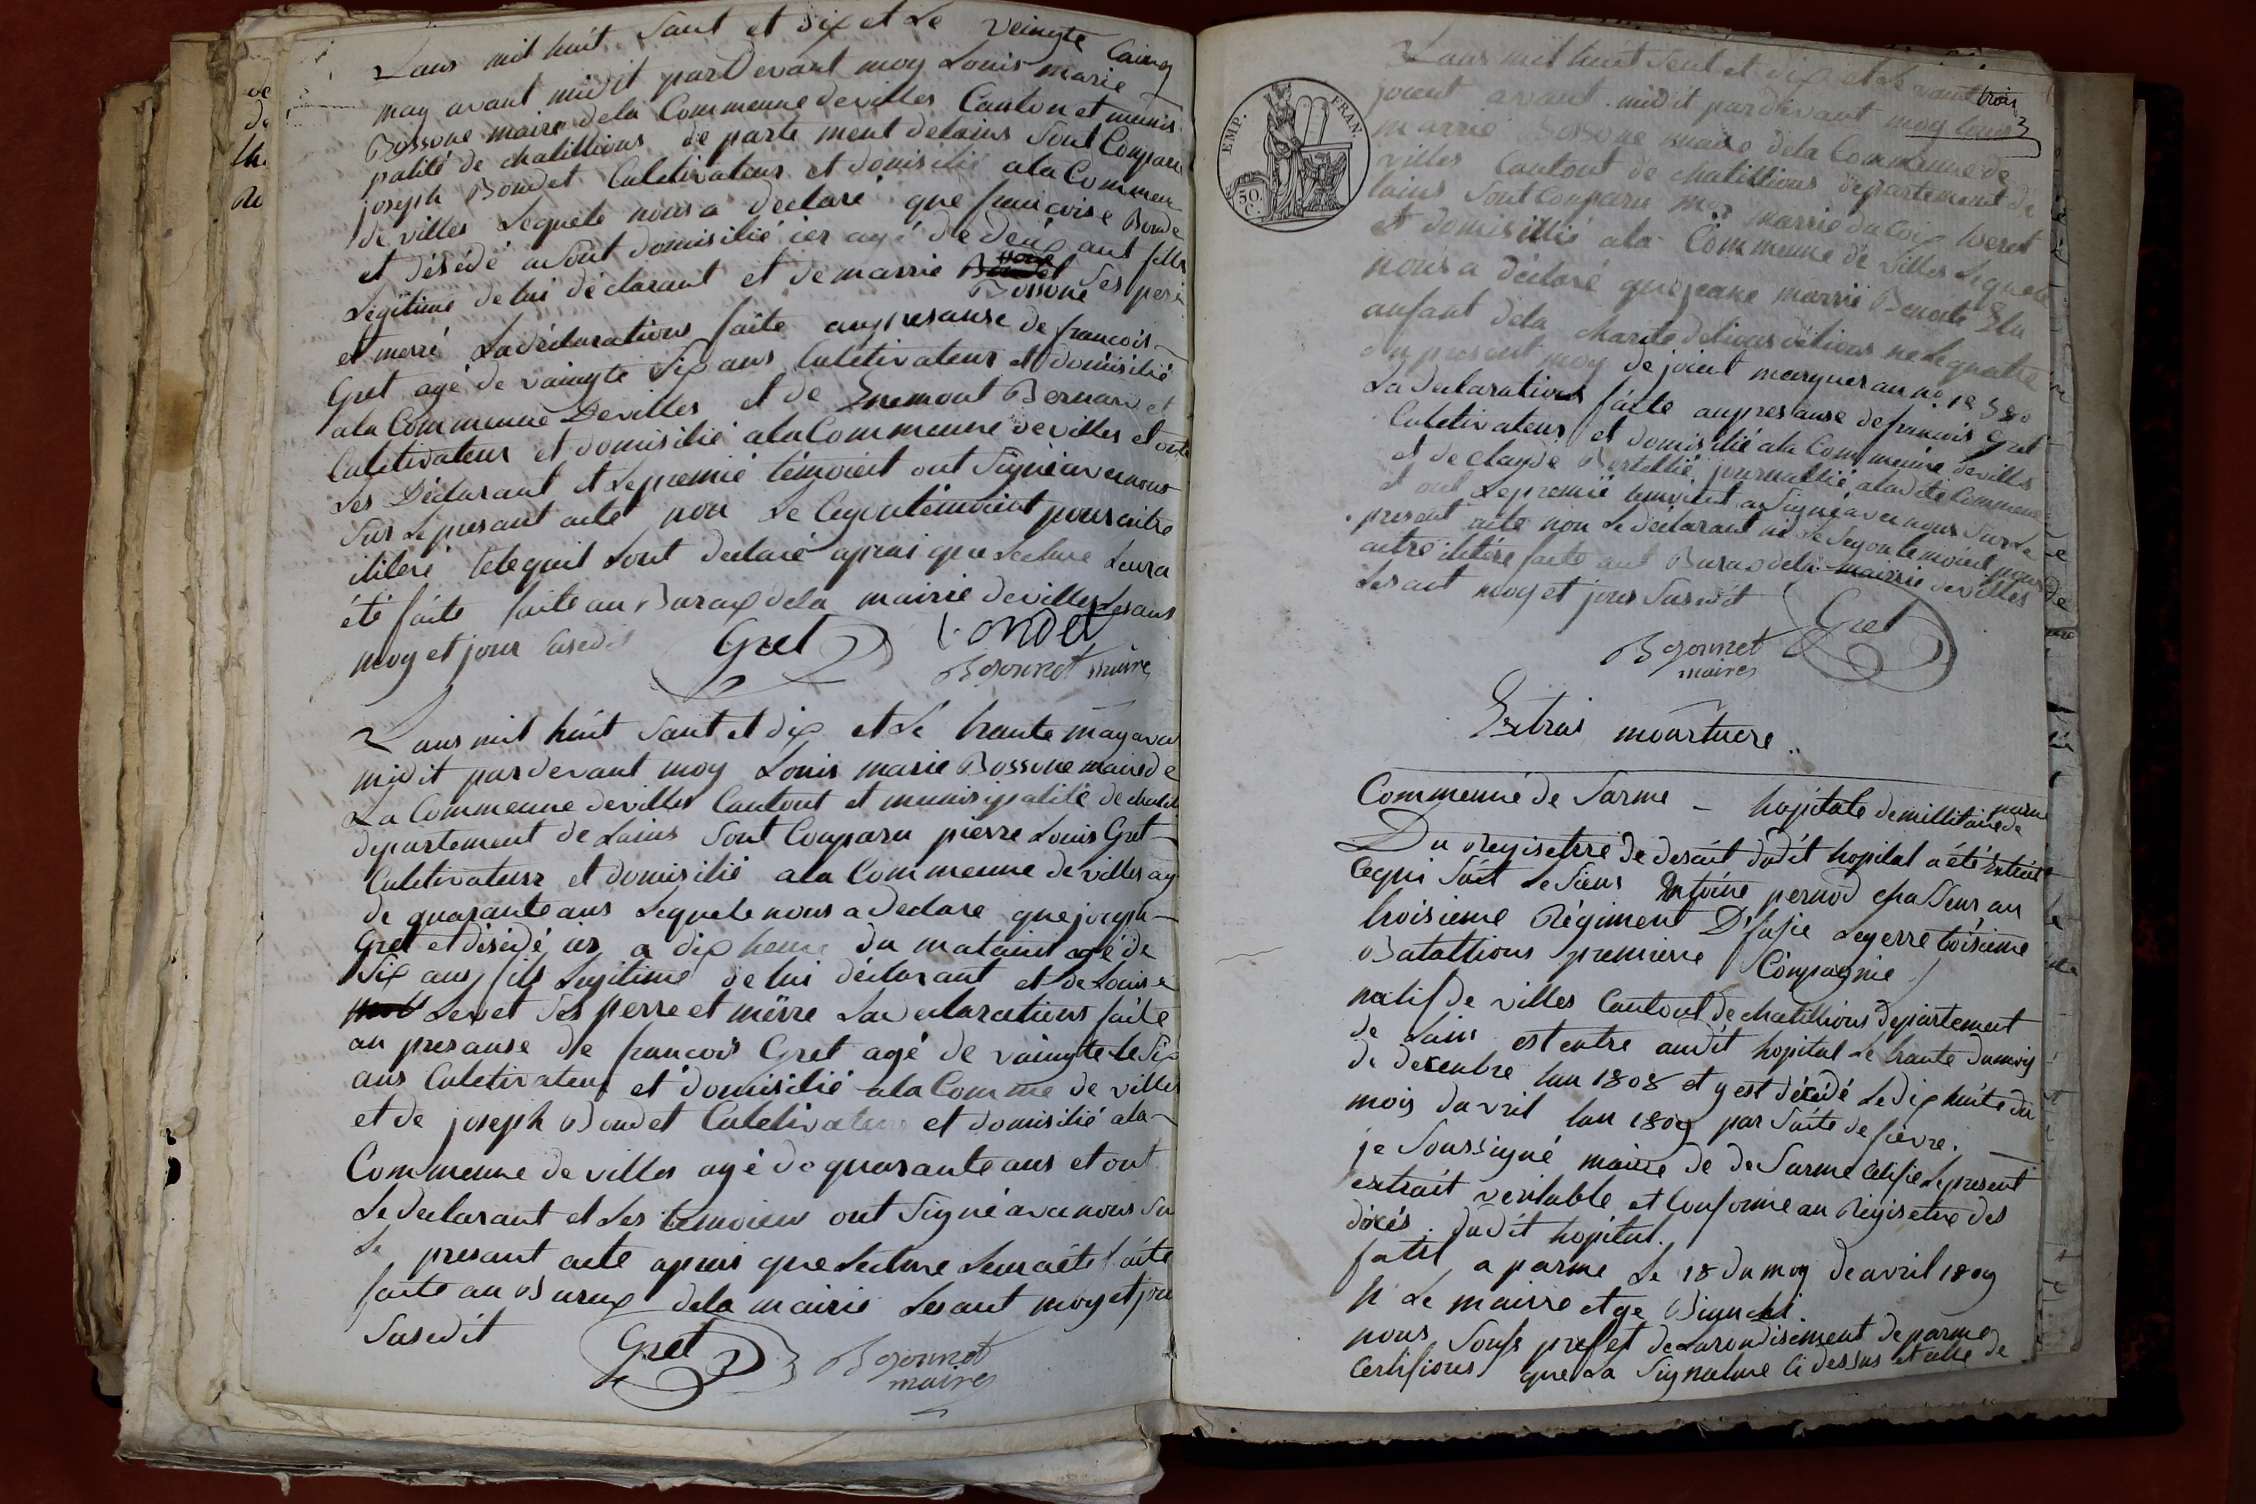 Lans mil huit Sant et dix et Le veingte Cainq
may avant midit pardevant moy Louis marie
Bossone maire dela Commenne devilles Canton et munis
palité de chatillions de parte ment delains Sont Comparu
joseph Bondet Culetivateur et domisilié ala Commen
de villes Lequele nous a declaré que francoise Bonde
et désédé domisilié ier agé de deux ant fille
Legitime de lui déclarant et de marrie Bossone Ses perre
et merré La déclarations faite anpresanse de francois
Gret agé de vaingte Six ans Culetivateur et domisilié
ala Commenne Devilles et de Enemont Bernard et
Culetivateur et domisilié ala Commenne devilles et ont
Les Déclarant et Lepremié témoient ont Signé avec nous
Sur Lepresant acte non Le Cegontémoient pour aitre
iliteré telequil Lont declaré aprais que Lecture Leura
été faite faite au Buraux dela mairie devilles Lesans
moy et jour Susedit
Gret Bondet
Bosonnet maire
Lans mil huit Sant et dix et Le trante may avan
midit pardevant moy Louis marie Bossone mairede
La Commenne devilles Cantont et munisipalité de chatill
departement de Lains Sont Comparu pierre Louis Gret
Culetivateur et domisilié ala Commenne de villes ag
de quarante ans Lequele nous a Declare que joseph
Gret et désédé ier a dix heure du mataint agé de
Six ans fils Legitime de lui déclarant et de Louise
Levet Ses perre et mérre La declarations faite
an presanse de francois Gret agé de vaingte Six
ans Culetivateur et domisilié ala Comme de villes
et de joseph Bondet Culetivateur et domisilié ala
Commenne de villes agé de quarante ans et ont
Le declarant et Les temoiens ont Signé avec nous Su
Le presant acte aprais que Lecture Leuraété faite
faite au Buraux dela mairie Lesant moy et jou
Susedit
Gret Bosonnet
maires
EMP. FRAN.
50. C.
Lans mil huit Sent et dix et Le vant trois
joient avant midit pardevant moy Louis
marrie Bossone maire dela Commenne de
villes Cantont de chatillions departement de
lains Sont Comparu marrie du Coix
et domisillié ala Commenne de villes Lequele
nous a déclaré que jeane marrie Benoite
anfant dela charite delions ne Lequatre
du present moy de joient marquer au no
La declarations faite anpresanse de francois Gret
Culetivateur et domisilié ala Commenne devilles
et de Claude journallié aladité Commenne
et ont Lepremié temoient a Signé avec nous Sur Le
present acte non Le declarant ni Le Segontemoient pour
aitre ilitére faite aut Buraux dela mairrie devilles
Les ant moy et jour Susedit
Gret
Bosonnet
maires
Extrai mourtuere
Commenne de Parme — hopitale demillitaire de
parme
Du Regisetrre de desait dudit hopital a été Extrait
Cequi Suit Le Sieur Antoine pernod chasseur au
troisieme Régiment D'infantrie Legerre
Batallions premiere Compagnie
natif de villes Cantout de chatillions departement
de Lain est entre audit hopital Le trante dumois
de decenbre lan 1808 et y est décédé Le dix huite du
mois davril lan 1809 par Suite de fievre.
je Soussigné maire de Parme Certifie Lepresent
extrait veritable et Conforme au Régisetre des
décés dudit hopital.
fait a parme Le 18 du moy de avril 1809
Le mairre Bianchi.
nous Sous prefet de Larondisement deparme
Certifions que La Signature Ci dessus et celle de